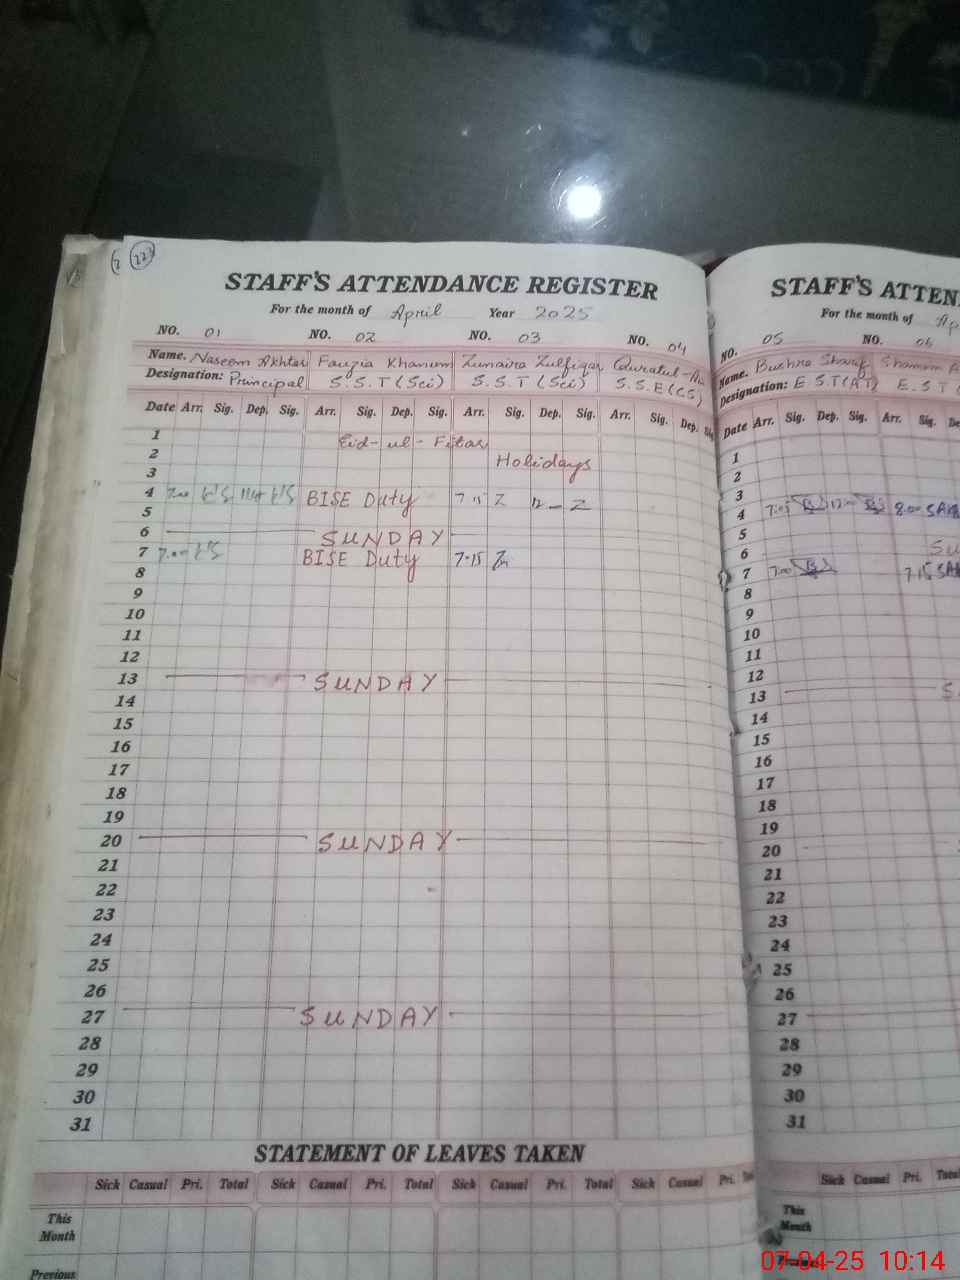 222
STAFF'S ATTENDANCE REGISTER
For the month of April Year 2025
NO. 01 NO. 02 NO. 03 NO. 04
Name. Naseem Akhtar Fauzia Khanum Zunaira Zulfiqar Quratul-
Designation: Principal S.S.T (Sci) S.S.T (Sci) S.S.E (CS)
Date Arr. Sig. Dep. Sig. Arr. Sig. Dep. Sig. Arr. Sig. Dep. Sig. Arr. Sig. Dep. Sig
1 Eid-ul-Fitar
2 Holidays
3
4 7.00 BISE Duty 7.15
5
6 SUNDAY
7 7.00 BISE Duty 7.15
8
9
10
11
12
13 SUNDAY
14
15
16
17
18
19
20 SUNDAY
21
22
23
24
25
26
27 SUNDAY
28
29
30
31
STATEMENT OF LEAVES TAKEN
Sick Casual Pri. Total Sick Casual Pri. Total Sick Casual Pri. Total Sick Casual Pri.
This
Month
Previous
STAFF'S ATTEN
For the month of Ap
NO. 05 NO. 06
Name. Bushra Sharif Shamam A
Designation: E.S.T (A.T) E.S.T
Date Arr. Sig. Dep. Sig. Arr. Sig. De
1
2
3
4 7:05 12:00 8.00
5
6 Su
7 7:00 7.15
8
9
10
11
12
13 S
14
15
16
17
18
19
20
21
22
23
24
25
26
27
28
29
30
31
Sick Casual Pri. Total
This
Month
07-04-25 10:14